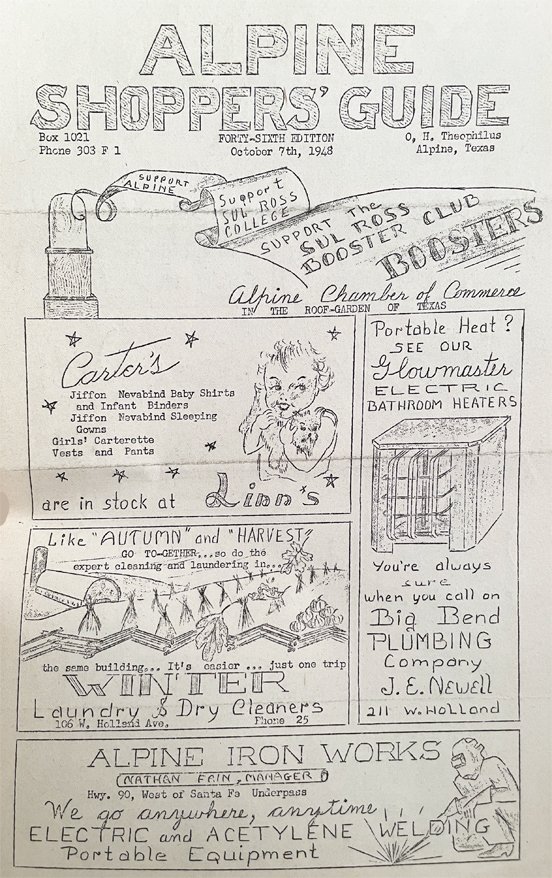 ALPINE
SHOPPERS' GUIDE
Box 1021
Phone 303 F 1
FORTY-SIXTH EDITION
October 7th, 1948
O. H. Theophilus
Alpine, Texas
SUPPORT
ALPINE
Support
SUL ROSS
COLLEGE
SUPPORT The
SUL ROSS
BOOSTER CLUB
BOOSTERS
Alpine Chamber of Commerce
IN THE ROOF-GARDEN OF TEXAS
Carter's
Jiffon Nevabind Baby Shirts
and Infant Binders
Jiffon Nevabind Sleeping
Gowns
Girls' Carterette
Vests and Pants
are in stock at Linn's
Portable Heat?
SEE OUR
Glowmaster
ELECTRIC
BATHROOM HEATERS
You're always
sure
when you call on
Big Bend
PLUMBING
Company
J. E. Newell
211 W. Holland
Like "AUTUMN" and "HARVEST"
GO TO-GETHER...so do the
expert cleaning and laundering in...
the same building... It's easier ... just one trip
WINTER
Laundry & Dry Cleaners
106 W. Holland Ave. Phone 25
ALPINE IRON WORKS
NATHAN FAIN, MANAGER
Hwy. 90, West of Santa Fe Underpass
We go anywhere, anytime
ELECTRIC and ACETYLENE WELDING
Portable Equipment